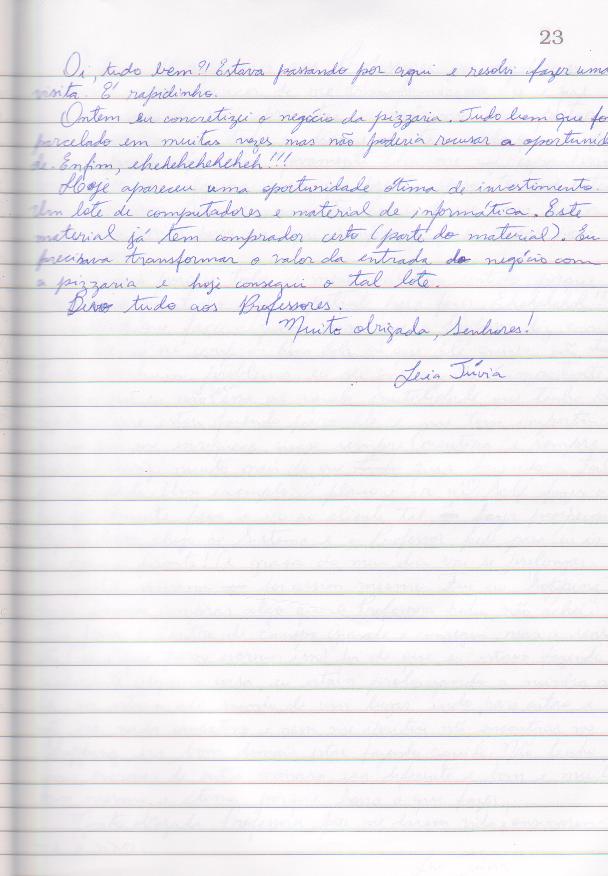 23
Oi, tudo bem?! Estava passando por aqui e resolvi fazer uma
visita. É rapidinho.
Ontem eu concretizei o negócio da pizzaria. Tudo bem que foi
parcelado em muitas vezes mas não poderia recusar a oportunida
de. Enfim, ehehehehehehéh!!!
Hoje apareceu uma oportunidade ótima de investimento.
Um lote de computadores e material de informática. Este
material já tem comprador certo (parte do material). Eu
precisava transformar o valor da entrada do negócio com
a pizzaria e hoje consegui o tal lote.
Devo tudo aos Professores.
Muito obrigada, Senhores!